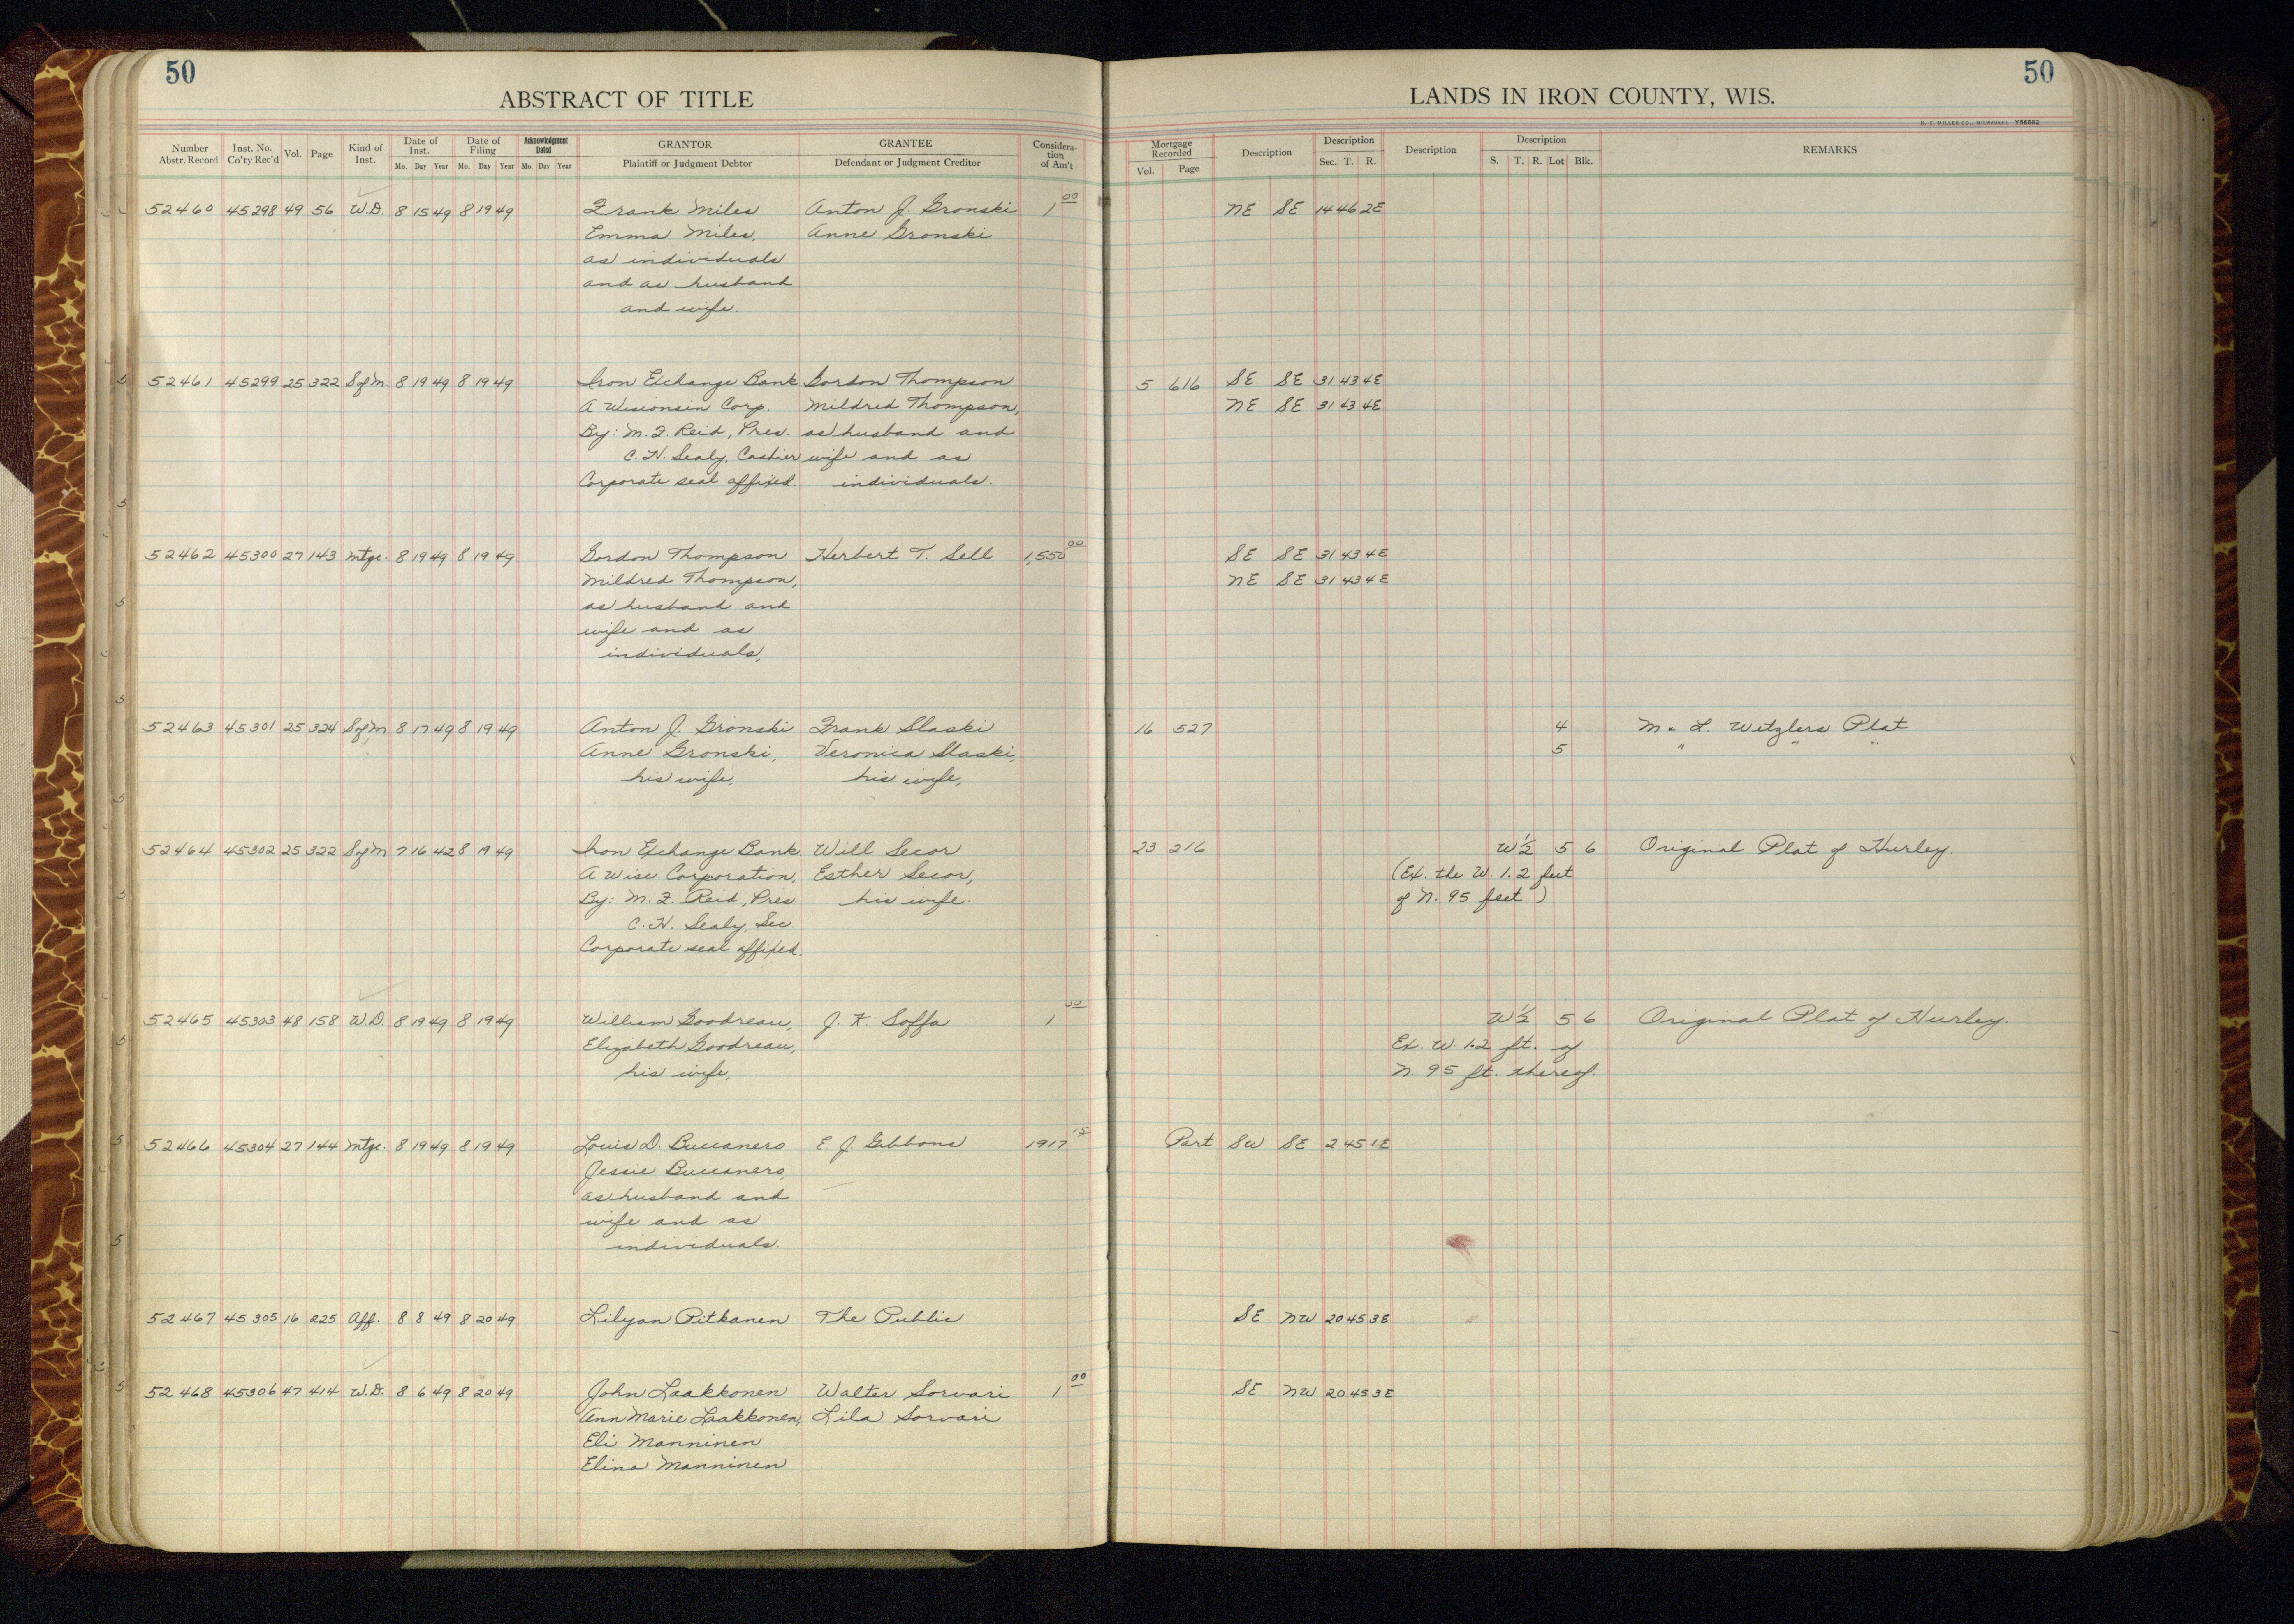 50
ABSTRACT OF TITLE
Number Abstr. Record Inst. No. Co'ty Rec'd Vol. Page Kind of Inst. Date of Inst. Mo. Day Year Date of Filing Mo. Day Year Acknowledgment Dated Mo. Day Year GRANTOR Plaintiff or Judgment Debtor GRANTEE Defendant or Judgment Creditor Consideration of Am't
52460 45298 49 56 W.D. 8 15 49 8 19 49 Frank Miles Anton J. Gronski 1 00
Emma Miles, Anne Gronski
as individuals
and as husband
and wife.
52461 45299 25 322 S of M. 8 19 49 8 19 49 Iron Exchange Bank Gordon Thompson
A Wisconsin Corp. Mildred Thompson,
By: M. F. Reid, Pres. as husband and
C. H. Sealy, Cashier wife and as
Corporate seal affixed individuals.
52462 45300 27 143 Mtge. 8 19 49 8 19 49 Gordon Thompson Herbert T. Sell 1,550 00
Mildred Thompson,
as husband and
wife and as
individuals,
52463 45301 25 324 S of M 8 17 49 8 19 49 Anton J. Gronski Frank Slaski
Anne Gronski, Veronica Slaski,
his wife, his wife,
52464 45302 25 322 S of M 7 16 42 8 19 49 Iron Exchange Bank Will Secor
A Wisc. Corporation, Esther Secor,
By: M. F. Reid, Pres. his wife.
C. H. Sealy, Sec.
Corporate seal affixed.
52465 45303 48 158 W.D. 8 19 49 8 19 49 William Goodreau, J. K. Soffa 1 00
Elizabeth Goodreau,
his wife,
52466 45304 27 144 Mtge. 8 19 49 8 19 49 Louis D. Buccanero E. J. Gibbons 1917 15
Jessie Buccanero,
as husband and
wife and as
individuals.
52467 45305 16 225 Aff. 8 8 49 8 20 49 Lilyan Pitkanen The Public
52468 45306 47 414 W.D. 8 6 49 8 20 49 John Laakkonen Walter Sorvari 1 00
Ann Marie Laakkonen, Lila Sorvari
Eli Manninen
Elina Manninen
50
LANDS IN IRON COUNTY, WIS.
H. C. MILLER CO., MILWAUKEE Y56082
Mortgage Recorded Vol. Page Description Description Sec. T. R. Description Description S. T. R. Lot Blk. REMARKS
NE SE 14 46 2E
5 616 SE SE 31 43 4E
NE SE 31 43 4E
SE SE 31 43 4E
NE SE 31 43 4E
16 527 4 M & L. Wetzlers Plat
5 " " "
23 216 W½ 5 6 Original Plat of Hurley.
(Ex. the W. 1.2 feet
of N. 95 feet.)
W½ 5 6 Original Plat of Hurley.
Ex. W. 1.2 ft. of
N. 95 ft. thereof.
Part SW SE 2 45 1E
SE NW 20 45 3E
SE NW 20 45 3E